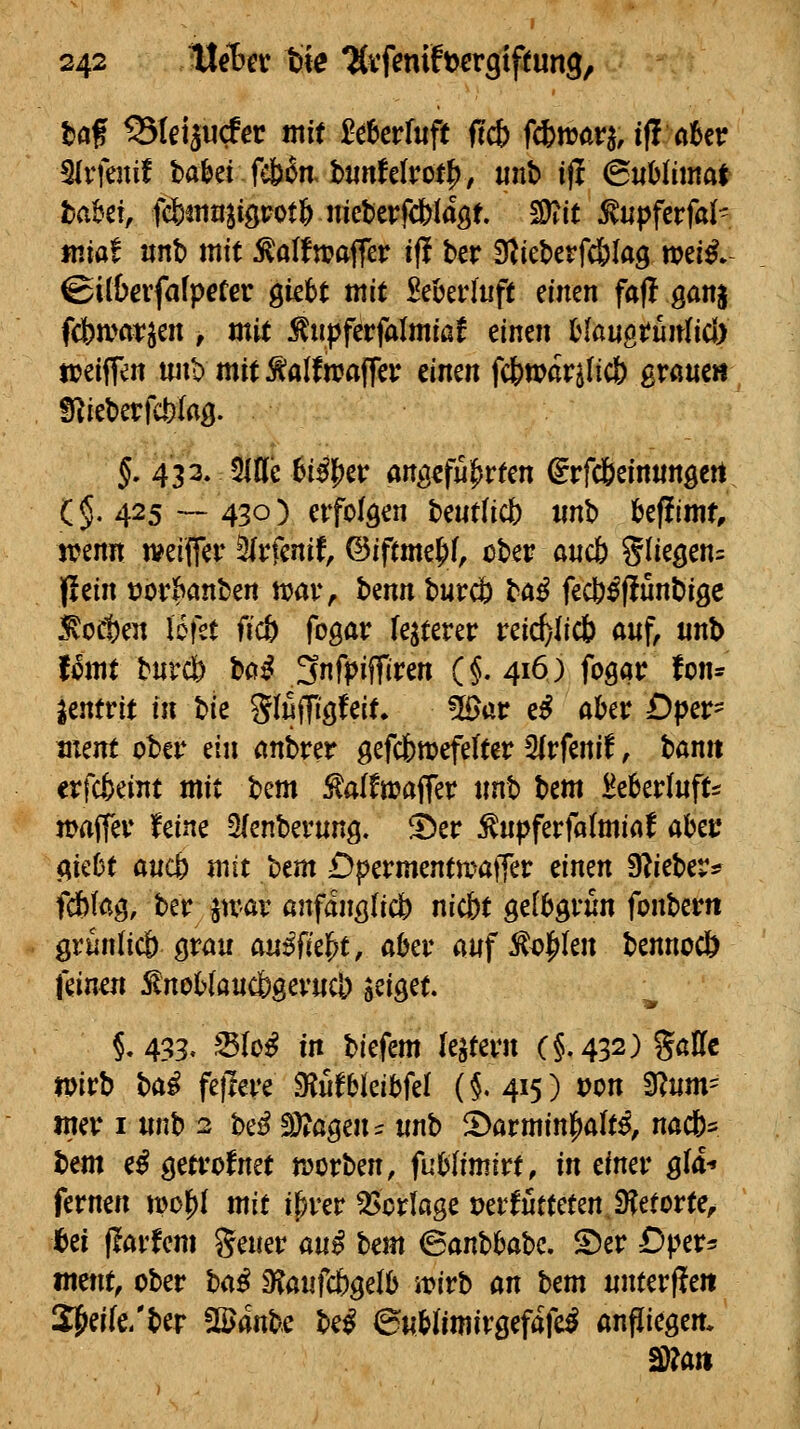 242 Ueber die Arsenikvergiftung,
daß Bleizucker mit Leberluft sich schwarz, ist aber
Arsenik dabei schön dunkelroth, und ist Sublimat
dabei, schmuzigroth niederschlägt. Mit Kupfersal-
miak und mit Kalkwasser ist der Niederschlag weis.
Silbersalpeter giebt mit Leberluft einen fast ganz
schwarzen, mit Kupfersalmiak einen blaugrünlich
weissen und mit Kalkwasser einen schwärzlich grauen
Niederschlag.
§. 432. Alle bisher angeführten Erscheinungen
(§. 425 — 430) erfolgen deutlich und bestimt,
wenn weisser Arsenik, Giftmehl, oder auch Fliegen-
stein vorhanden war, denn durch das sechsstündige
Kochen löset sich sogar lezterer reichlich auf, und
kömt durch das Inspissiren (§. 416) sogar kon-
zentrit in die Flüssigkeit. War es aber Oper-
ment oder ein andrer geschwefelter Arsenik, dann
erscheint mit dem Kalkwasser und dem Leberluft-
wasser keine Aenderung. Der Kupfersalmiak aber
giebt auch mit dem Opermentwasser einen Nieder-
schlag, der zwar anfänglich nicht gelbgrün sondern
grünlich grau aussieht, aber auf Kohlen dennoch
seinen Knoblauchgeruch zeiget.
§. 433. Blos in diesem leztern (§. 432) Falle
wird das festere Rükbleibsel (§. 415) von Num-
mer 1 und 2 des Magen- und Darminhalts, nach-
dem es getroknet worden, sublimirt, in einer glä-
sernen wohl mit ihrer Vorlage verkütteten Retorte,
bei starkem Feuer aus dem Sandbade. Der Oper-
ment, oder das Rauschgelb wird an dem untersten
Theile der Wände des Sublimirgefäses anfliegen.
Man